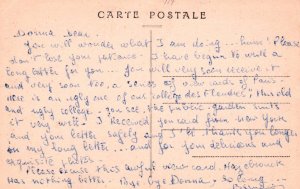 CARTE POSTALE
Donna dear.
You will wonder what I am doing... here! Please
don't lose your patience. I have begun to write a
long letter for you... you will very soon receive it
and very soon too, a series of new cards of Paris.
Here is an ugly one of our collège des Flandres. This old
and ugly college. You see, the public garden suits
it very well. I received your card from New York
and your letter safely and I'll thank you longer
in my long letter... and for your delicious and
exquisite letter.
Please excuse this awful view card. Hazebrouck
has nothing better. Bye bye Donna, so long